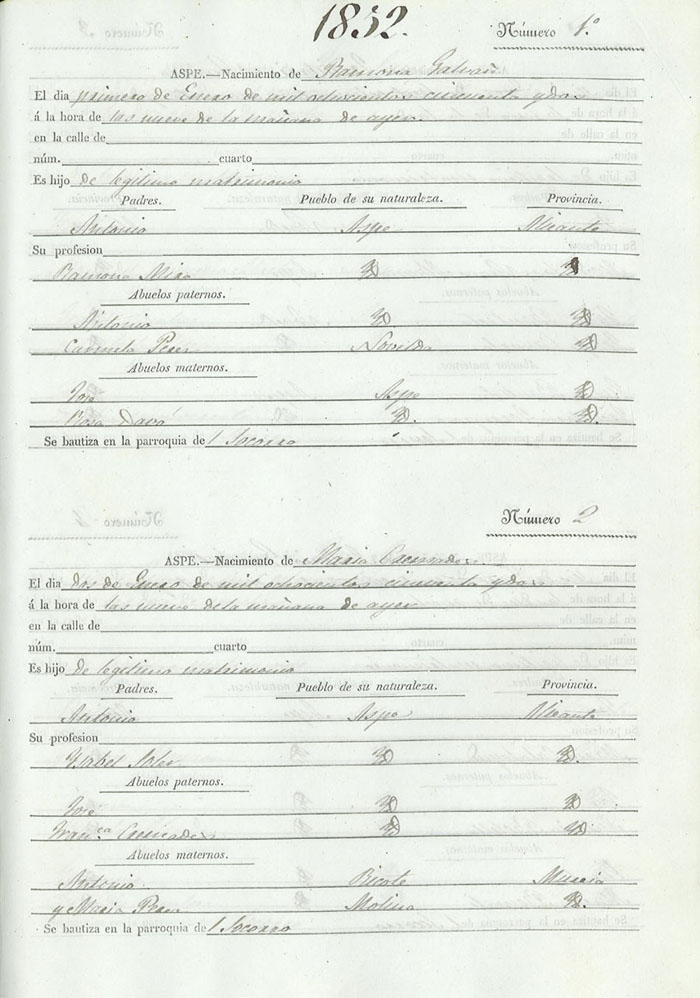 1852.
Número 1.º
ASPE.—Nacimiento de Ramona Galvañ
El dia primero de Enero de mil ochocientos cincuenta y dos
á la hora de las nueve de la mañana de ayer.
en la calle de
núm. cuarto
Es hijo de legitimo matrimonio
Padres. Pueblo de su naturaleza. Provincia.
Antonio Aspe Alicante
Su profesion
Ramona Mira
Abuelos paternos.
Antonio
Carmela Perez Novelda
Abuelos maternos.
José Aspe
Rosa Davó
Se bautiza en la parroquia del Socorro
Número 2
ASPE.—Nacimiento de Maria
El dia dos de Enero de mil ochocientos cincuenta y dos
á la hora de las nueve de la mañana de ayer
en la calle de
núm. cuarto
Es hijo de legitimo matrimonio
Padres. Pueblo de su naturaleza. Provincia.
Antonio Aspe Alicante
Su profesion
Ysabel Soler
Abuelos paternos.
José
Fran.ca
Abuelos maternos.
Antonio Ricote Murcia
y Maria Perez Molina
Se bautiza en la parroquia del Socorro